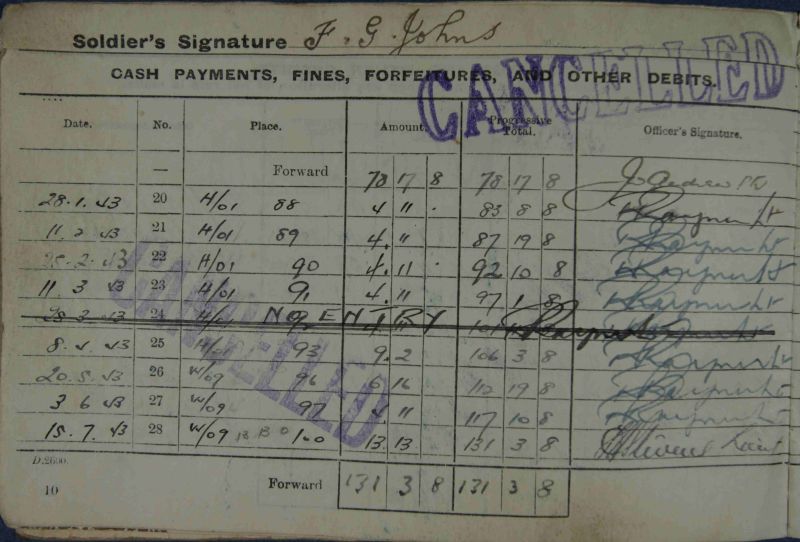 Soldier's Signature F. G. Johns
CASH PAYMENTS, FINES, FORFEITURES, AND OTHER DEBITS.
CANCELLED
Date. No. Place. Amount. Progressive Total. Officer's Signature.
— Forward 78 17 8 78 17 8
28.1.43 20 H/01 88 4 11 . 83 8 8
11.2.43 21 H/01 89 4. 11 87 19 8
25.2.43 22 H/01 90 4. 11 92 10 8
11.3.43 23 H/01 91 4. 11 97 1 8
24 H/01 92 NO ENTRY
8.4.43 25 H/01 93 9.2 106 3 8
20.5.43 26 W/09 96 6 16 112 19 8
3 6 43 27 W/09 97 4 11 117 10 8
15.7.43 28 W/09 100 13.13 131 3 8
CANCELLED
D.2600.
10 Forward 131 3 8 131 3 8